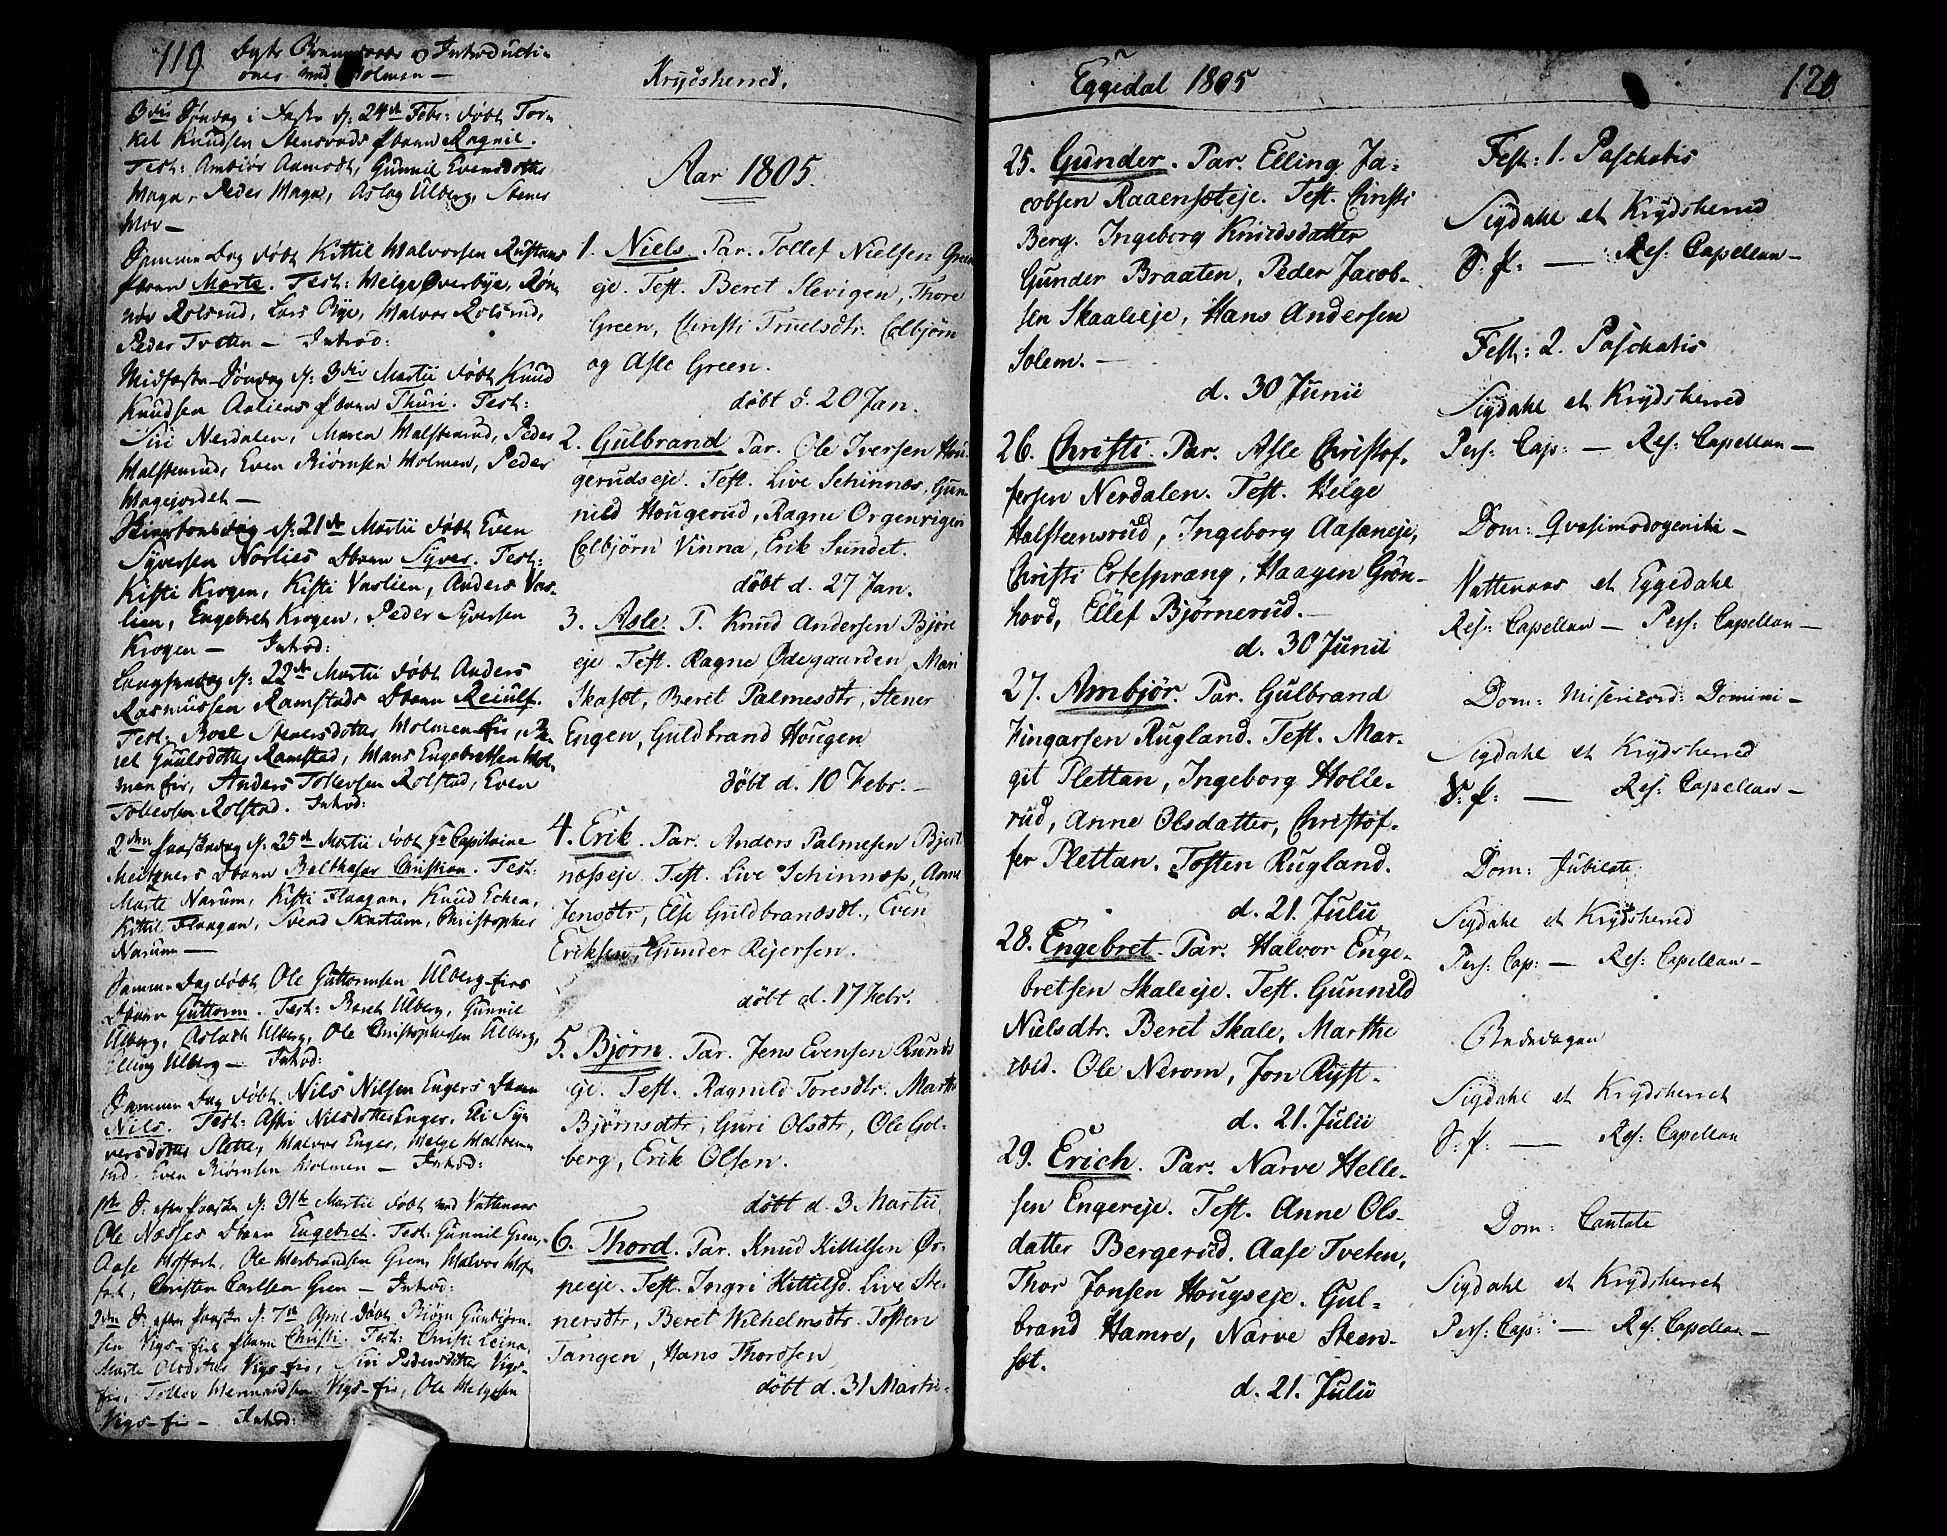 119. Dagte Børnenavne og Introducti-
ones med Holmen —
3die Søndag i Faste d: 24de Febr: døbt Tor-
kel Knudsen Stensruds Ubarn Ragnil.
Test: Ambiør Aamodt, Gunnil Evensdotter
Maga, Peder Maga, Aslag Ulberg, Stener
Moe —
Samme Dag døbt Kittil Halvorsen Rustans
Ubarn Marte. Test: Helge Overbye, Røn-
nov Rolsrud, Lars Bye, Halvor Rolsrud,
Peder Tveten — Introd:
Midfaste-Søndag d: 3die Martii døbt Knud
Knudsen Aaliens Ubarn Thuri. Test:
Siri Nerdalen, Maren Halstenrud, Peder
Halstenrud, Even Biørnsen Holmen, Peder
Hagejordet —
d: 21de Martii døbt Even
Syversen Norlies Dbarn Syver. Test:
Kisti Krogen, Kisti Vaslien, Anders Vas-
lien, Engebret Krogen, Peder Syversen
Krogen — Introd:
Langfredag d: 22de Martii døbt Anders
Rasmussen Ramstads Dbarn Reiulf.
Test: Boel Stenersdotter Holmen-eie,
Guulsdotter Ramstad, Hans Engebretsen Hol-
men eie, Anders Tollevsen Rolstad, Even
Tollevsen Rolstad. Introd:
2den Paaskedag d: 25de Martii døbt Hr Capitaine
Meitzners Dbarn Balthasar Christian. Test:
Marte Narum, Kisti Flaagan, Knud Echen,
Kittil Flaagan, Svend Skartum, Christopher
Narum —
Samme Dag døbt Ole Guttormsen Ulberg-eies
Dbarn Guttorm. Test: Baret Ulberg, Gunnil
Ulberg, Aslach Ulberg, Ole Christophersen Ulberg,
Elling Ulberg — Introd:
Samme Dag døbt Nils Nilsen Engers Dbarn
Nils. Test: Astri Nilsdotter Enger, Eli Syv-
versdotter Slette, Halvor Enger, Helge Halsten-
rud, Even Biørnsen Holmen — Introd:
1ste S. efter Paaske d: 31te Martii døbt ved Vattenaas
Ole Næsses Dbarn Engebret. Test: Gunnil Gren,
Aase Hoffart, Ole Herbrandsen Gren, Halvor Hof-
fart, Christen Carlsen Gren — Introd:
2den S. efter Paaske d: 7de April døbt Biørn Gunbiørn-
sen Vigs-eies Ubarn Christi. Test: Christi Leina,
Marte Olsdotter Vigs-eie, Siri Pedersdotter Vigs-
eie, Tollev Hermandsen Vigs-eie, Ole Helgesen
Vigs-eie — Introd:
Krydsherred.
Aar 1805.
1. Niels. Par. Tollef Nielsen Green
eje. Test. Beret Slevigen, Thore
Green, Christi Truelsdtr. Colbjørn
og Asle Green.
døbt d. 20 Jan.
2. Gulbrand Par. Ole Iversen Hou-
gerudseje. Test. Live Schinnes, Gun-
nild Hougerud, Ragne Orgenrigen
Colbjørn Vinna, Erik Sundet.
døbt d. 27 Jan.
3. Asle. P. Knud Andersen Bjøre
eje Test. Ragne Ødegaarden, Mari
Skasæt, Beret Palmesdtr, Stener
Engen, Guldbrand Hougen
døbt d. 10 Febr. —
4. Erik. Par. Anders Palmesen Bjert
næsseje. Test. Live Schinnes, Anne
Jensdtr, Else Guldbrandsdt., Even
Eriksen, Gunder Rejersen.
døbt d. 17 Febr.
5. Bjørn. Par. Jens Evensen Runds
eje. Test. Ragnild Toresdtr. Marthe
Bjørnsdtr, Guri Olsdtr, Ole Gol-
berg, Erik Olsen.
døbt d. 3 Martii
6. Thord. Par. Knud Kittilsen Øs-
peeje. Test. Ingri Kittilsd. Live Ste-
nersdtr, Beret Wilhelmsdtr. Tosten
Tangen, Hans Thordsen
døbt d. 31 Martii.
Eggedal 1805
25. Gunder. Par. Elling Ja-
cobsen Raaensæteje. Test. Christi
Berg. Ingeborg Knudsdatter
Gunder Braaten, Peder Jacob-
sen Skaleeje, Hans Andersen
Solem. —
d. 30 Junii
26. Christi. Par. Asle Christof-
fersen Nerdalen. Test. Helge
Halsteensrud, Ingeborg Aasaneje,
Christi Ertesprang, Haagen Grøn-
hovd, Ellef Bjørnerud. —
d. 30 Junii
27. Ambjør. Par. Gulbrand
Fingarsen Rugland. Test. Mar-
git Plettan, Ingeborg Holle-
rud, Anne Olsdatter, Christof-
fer Plettan. Tosten Rugland.
d. 21. Julii
28. Engebret. Par. Halvor Enge-
bretsen Skaleeje. Test. Gunnild
Nielsdtr. Beret Skale, Marthe
ibid. Ole Nerom, Jon Ryst.
d. 21. Julii
29. Erich. Par. Narve Helle-
sen Engereje. Test. Anne Ols-
datter Bergerud. Aase Tveten,
Thor Jonsen Hougseje. Gul-
brand Hamre, Narve Steen-
sæt.
d. 21. Julii
120
Fest: 1. Paschatis
Sigdahl et Krydsherred
S: p: — Res: Capellan —
Fest: 2. Paschatis
Sigdahl et Krydsherred
Pers: Cap: — Res: Capellan —
Dom: Qvasimodogeniti —
Vattenaas et Eggedahl
Res: Capellan — Pers: Capellan —
Dom: Misericord: Domini —
Sigdahl et Krydsherred
S: p: — Res: Capellan —
Dom: Jubilate
Sigdahl et Krydsherred
Pers: Cap: — Res: Capellan —
Bededagen
Sigdahl et Krydsherret
S: p: — Res: Capellan
Dom: Cantate
Sigdahl et Krydsherret
Pers: Cap: — Res: Capellan —